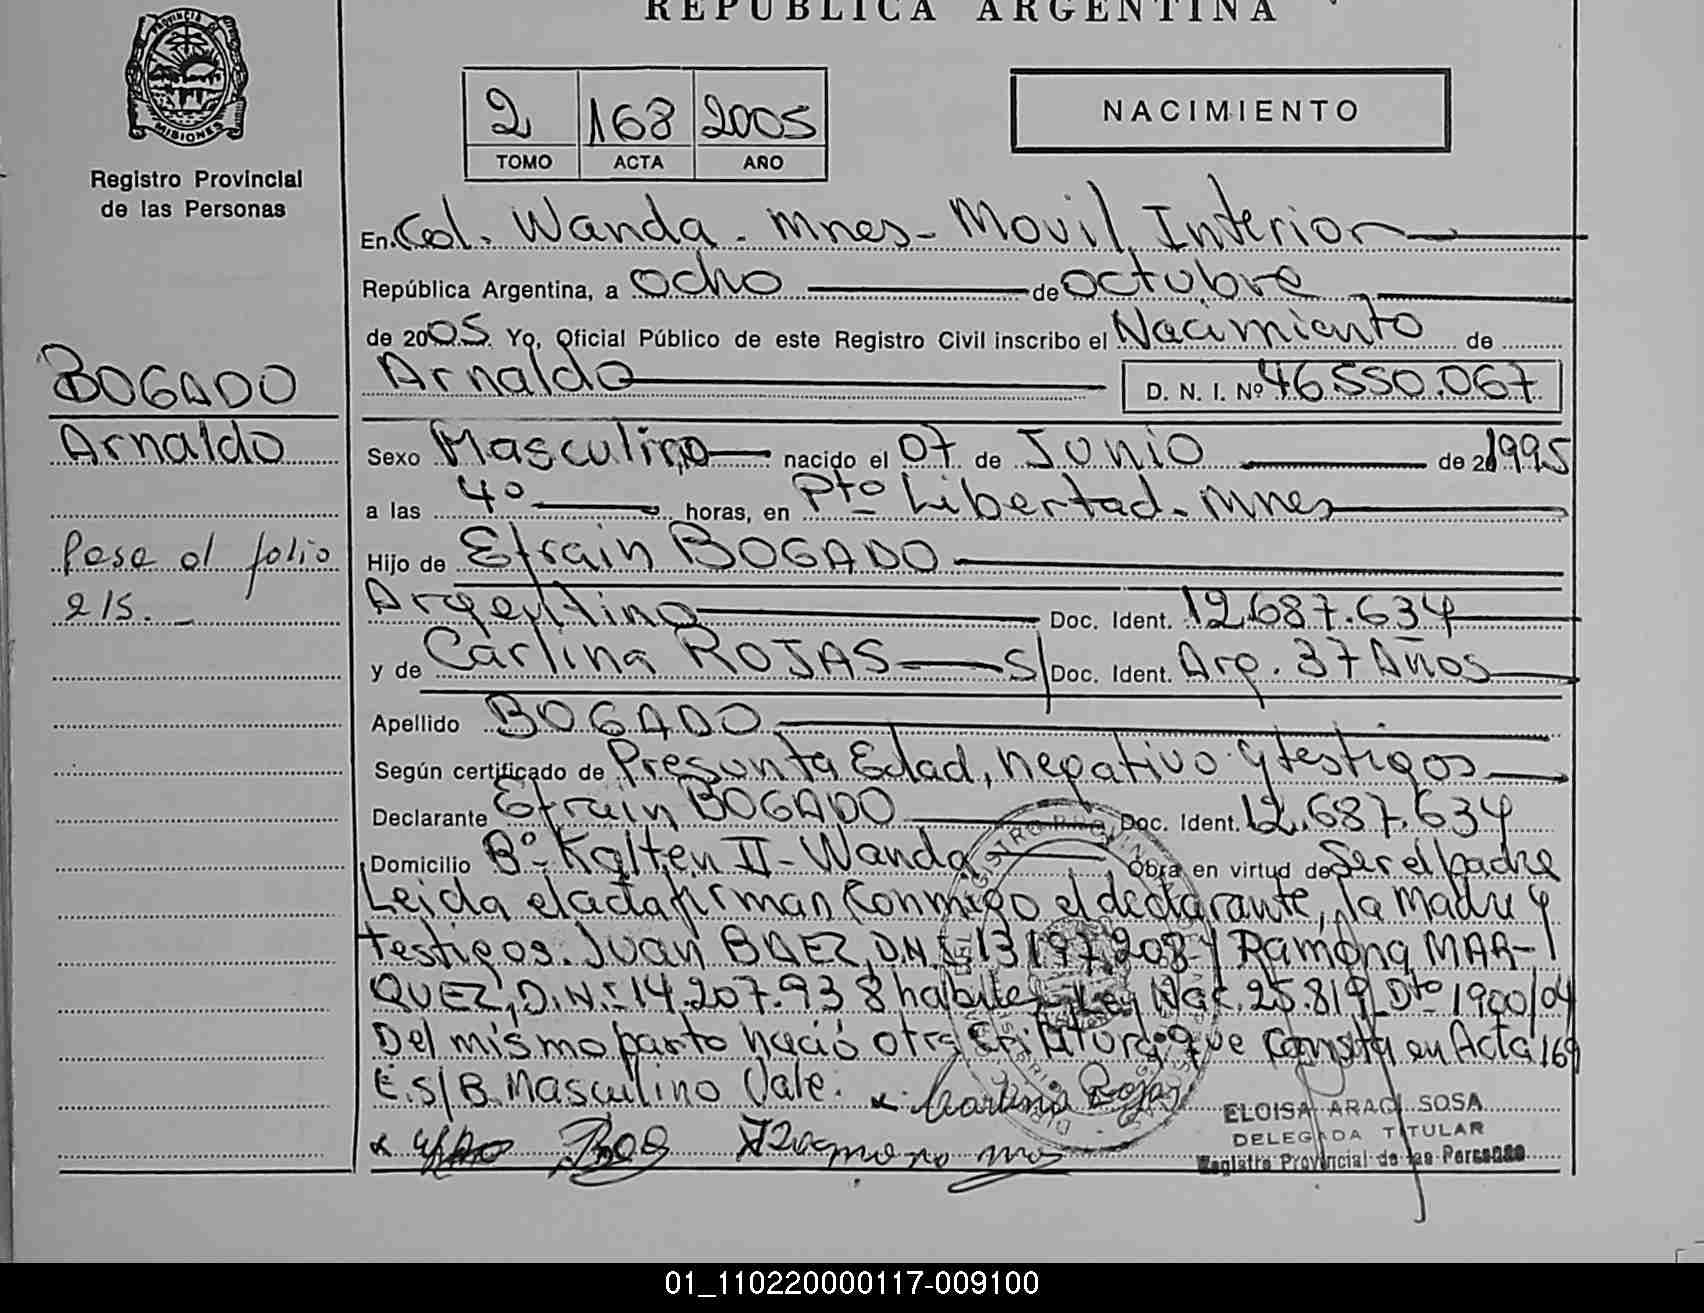 REPUBLICA ARGENTINA
PROVINCIA DE
MISIONES
Registro Provincial
de las Personas
2 168 2005
TOMO ACTA AÑO
NACIMIENTO
En Col. Wanda - Mnes - Movil Interior
República Argentina, a ocho de octubre
de 2005 Yo, Oficial Público de este Registro Civil inscribo el Nacimiento de
Arnaldo D. N. I. Nº 46.550.067
BOGADO
Arnaldo
Pase al folio
215.
Sexo Masculino nacido el 07 de Junio de 1995
a las 4º horas, en Pto Libertad - Mnes
Hijo de Efrain BOGADO
Argentino Doc. Ident. 12.687.634
y de Carlina ROJAS S/ Doc. Ident. Arg. 37 Años
Apellido BOGADO
Según certificado de Presunta Edad, negativo y testigos
Declarante Efrain BOGADO Doc. Ident. 12.687.634
Domicilio Bº Kalten II - Wanda Obra en virtud de Ser el padre
Leida el acta firman conmigo el declarante, la madre y
testigos. Juan BAEZ, D.N.I. 13.197.208 y Ramona MAR-
QUEZ, D.N.I. 14.207.938 habiles Ley Nac. 25.819 Dto 1900/04
Del mismo parto nació otra Criatura que Consta en Acta 169
E.S/B. Masculino Vale. Carlina Rojas
ELOISA ARACI SOSA
DELEGADA TITULAR
Registro Provincial de las Personas
01_110220000117-009100